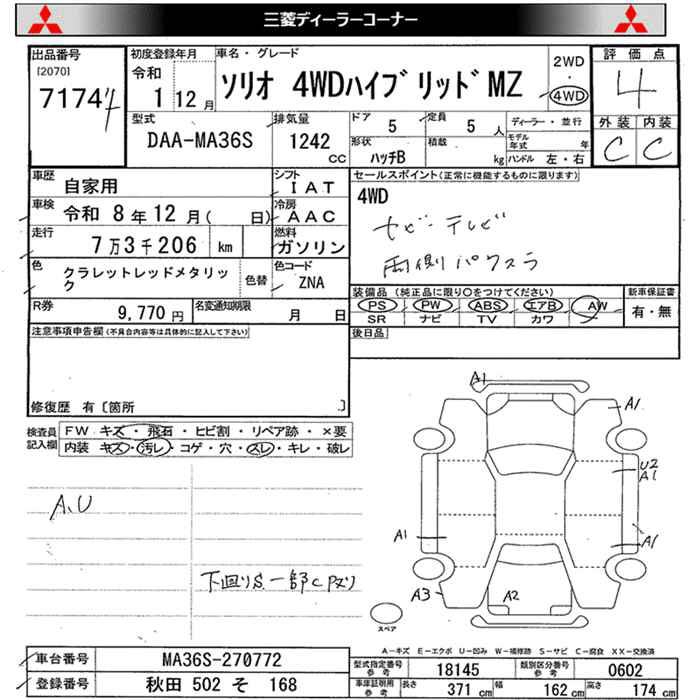 三菱ディーラーコーナー
出品番号
[2070]
7174
初度登録年月
令和
1 12月
車名・グレード
ソリオ 4WDハイブリッドMZ
2WD
・
4WD
評価点
4
外装 内装
C C
型式
DAA-MA36S
排気量
1242
CC
ドア 5
定員 5 人
形状 ハッチB
積載 kg
ディーラー・並行
モデル年式 年
ハンドル 左・右
車歴 自家用
シフト IAT
車検 令和 8年12月( 日)
冷房 AAC
走行 7万3千206 km
燃料 ガソリン
色 クラレットレッドメタリック
色替
色コード ZNA
R券 9,770円
名変通知期限 月 日
セールスポイント(正常に機能するものに限ります)
4WD
ナビ・テレビ
両側パワスラ
装備品(純正品に限り○をつけてください)
PS PW ABS エアB AW
SR ナビ TV カワ
新車保証書
有・無
後日品
注意事項申告欄(不具合内容等は具体的に記入して下さい)
修復歴 有〔箇所 〕
検査員記入欄
FW キズ・飛石・ヒビ割・リペア跡・×要
内装 キズ・汚レ・コゲ・穴・スレ・キレ・破レ
A、U
下回りS 一部C
A1
A1
U2
A1
A1
A1
A3
A2
スペア
A-キズ E-エクボ U-凹み W-補修跡 S-サビ C-腐食 XX-交換済
車台番号 MA36S-270772
登録番号 秋田 502 そ 168
型式指定番号 参考 18145
類別区分番号 参考 0602
車庫証明用 参考 長さ 371 cm 幅 162 cm 高さ 174 cm